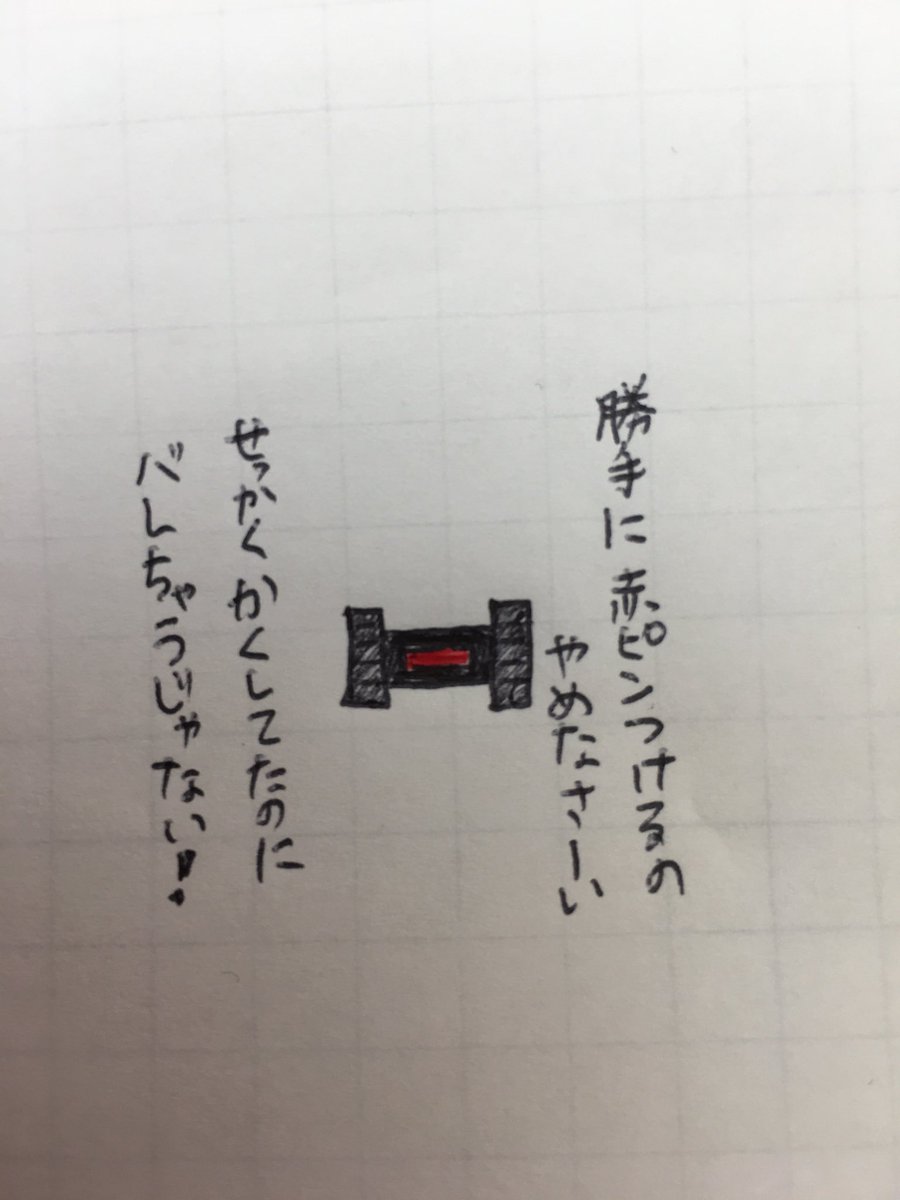 勝手に赤ピンつけるの
やめなさーい
せっかくかくしてたのに
バレちゃうじゃない!